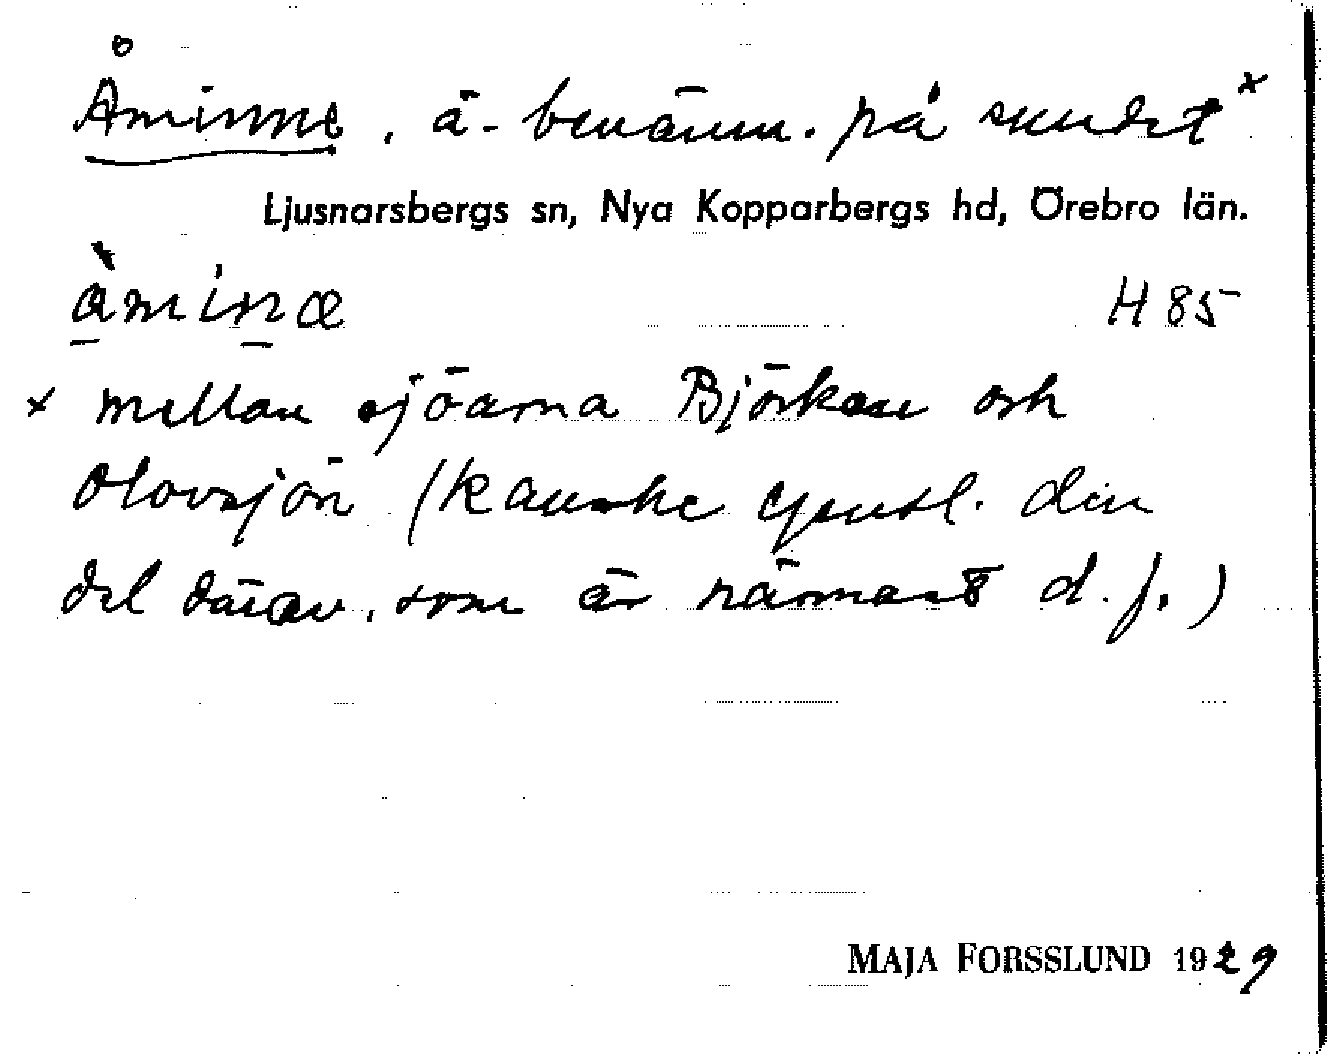 Åminne, ä- benämn. på sundet x
Ljusnarsbergs sn, Nya Kopparbergs hd, Örebro län.
àminæ H 85
x mellan sjöarna Björken och
Olovsjön (kanske egentl. den
del därav, som är närmast d. f.)
MAJA FORSSLUND 1929